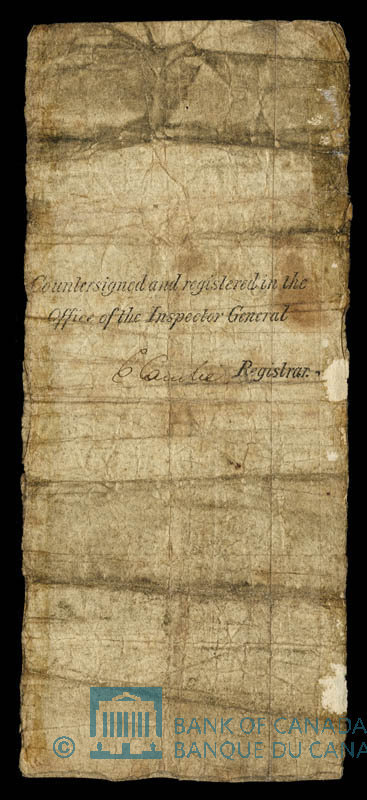 Countersigned and registered in the
Office of the Inspector General
Registrar.
© BANK OF CANADA
BANQUE DU CANA